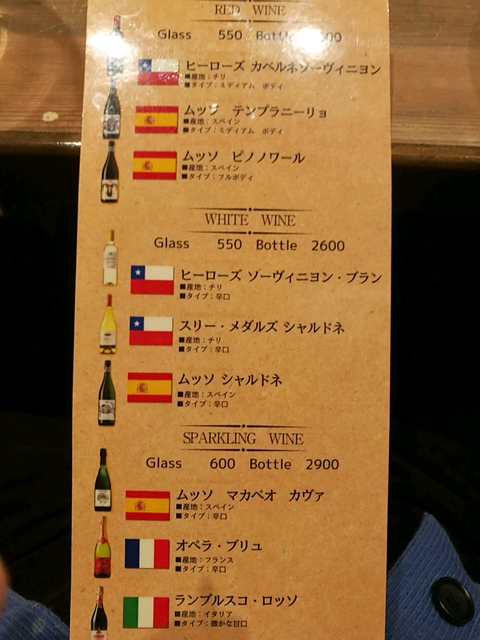 RED WINE
Glass 550 Bottle
ヒーローズ カベルネソーヴィニヨン
■産地：チリ
■タイプ：ミディアム ボディ
ムッソ テンプラニーリョ
■産地：スペイン
■タイプ：ミディアム ボディ
ムッソ ピノノワール
■産地：スペイン
■タイプ：フルボディ
WHITE WINE
Glass 550 Bottle 2600
ヒーローズ ソーヴィニヨン・ブラン
■産地：チリ
■タイプ：辛口
スリー・メダルズ シャルドネ
■産地：チリ
■タイプ：辛口
ムッソ シャルドネ
■産地：スペイン
■タイプ：辛口
SPARKLING WINE
Glass 600 Bottle 2900
ムッソ マカベオ カヴァ
■産地：スペイン
■タイプ：辛口
オペラ・ブリュ
■産地：フランス
■タイプ：辛口
ランブルスコ・ロッソ
■産地：イタリア
■タイプ：微かな甘口